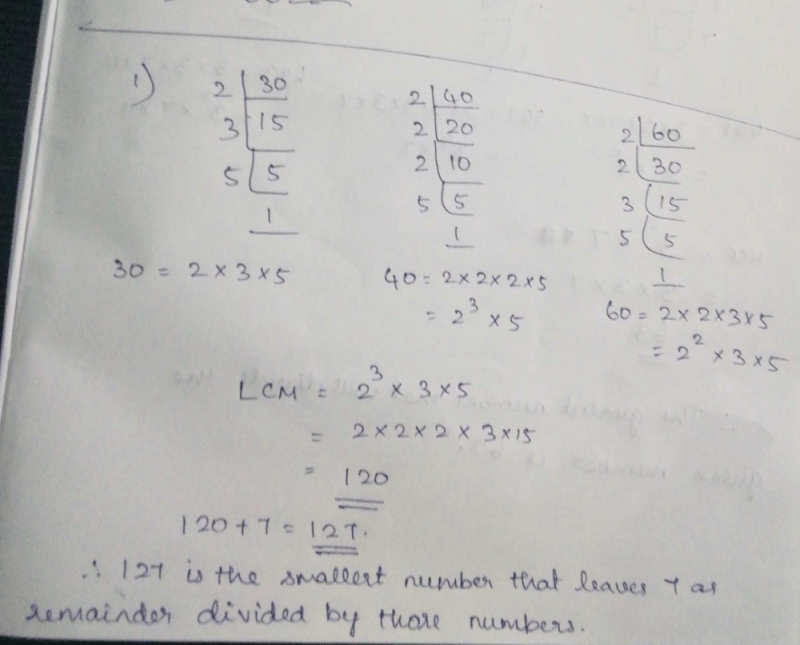 1)
2 | 30
3 | 15
5 | 5
1
2 | 40
2 | 20
2 | 10
5 | 5
1
2 | 60
2 | 30
3 | 15
5 | 5
1
30 = 2 × 3 × 5
40 = 2 × 2 × 2 × 5
= 2³ × 5
60 = 2 × 2 × 3 × 5
= 2² × 3 × 5
LCM = 2³ × 3 × 5
= 2 × 2 × 2 × 3 × 15
= 120
120 + 7 = 127.
∴ 127 is the smallest number that leaves 7 as
remainder divided by those numbers.